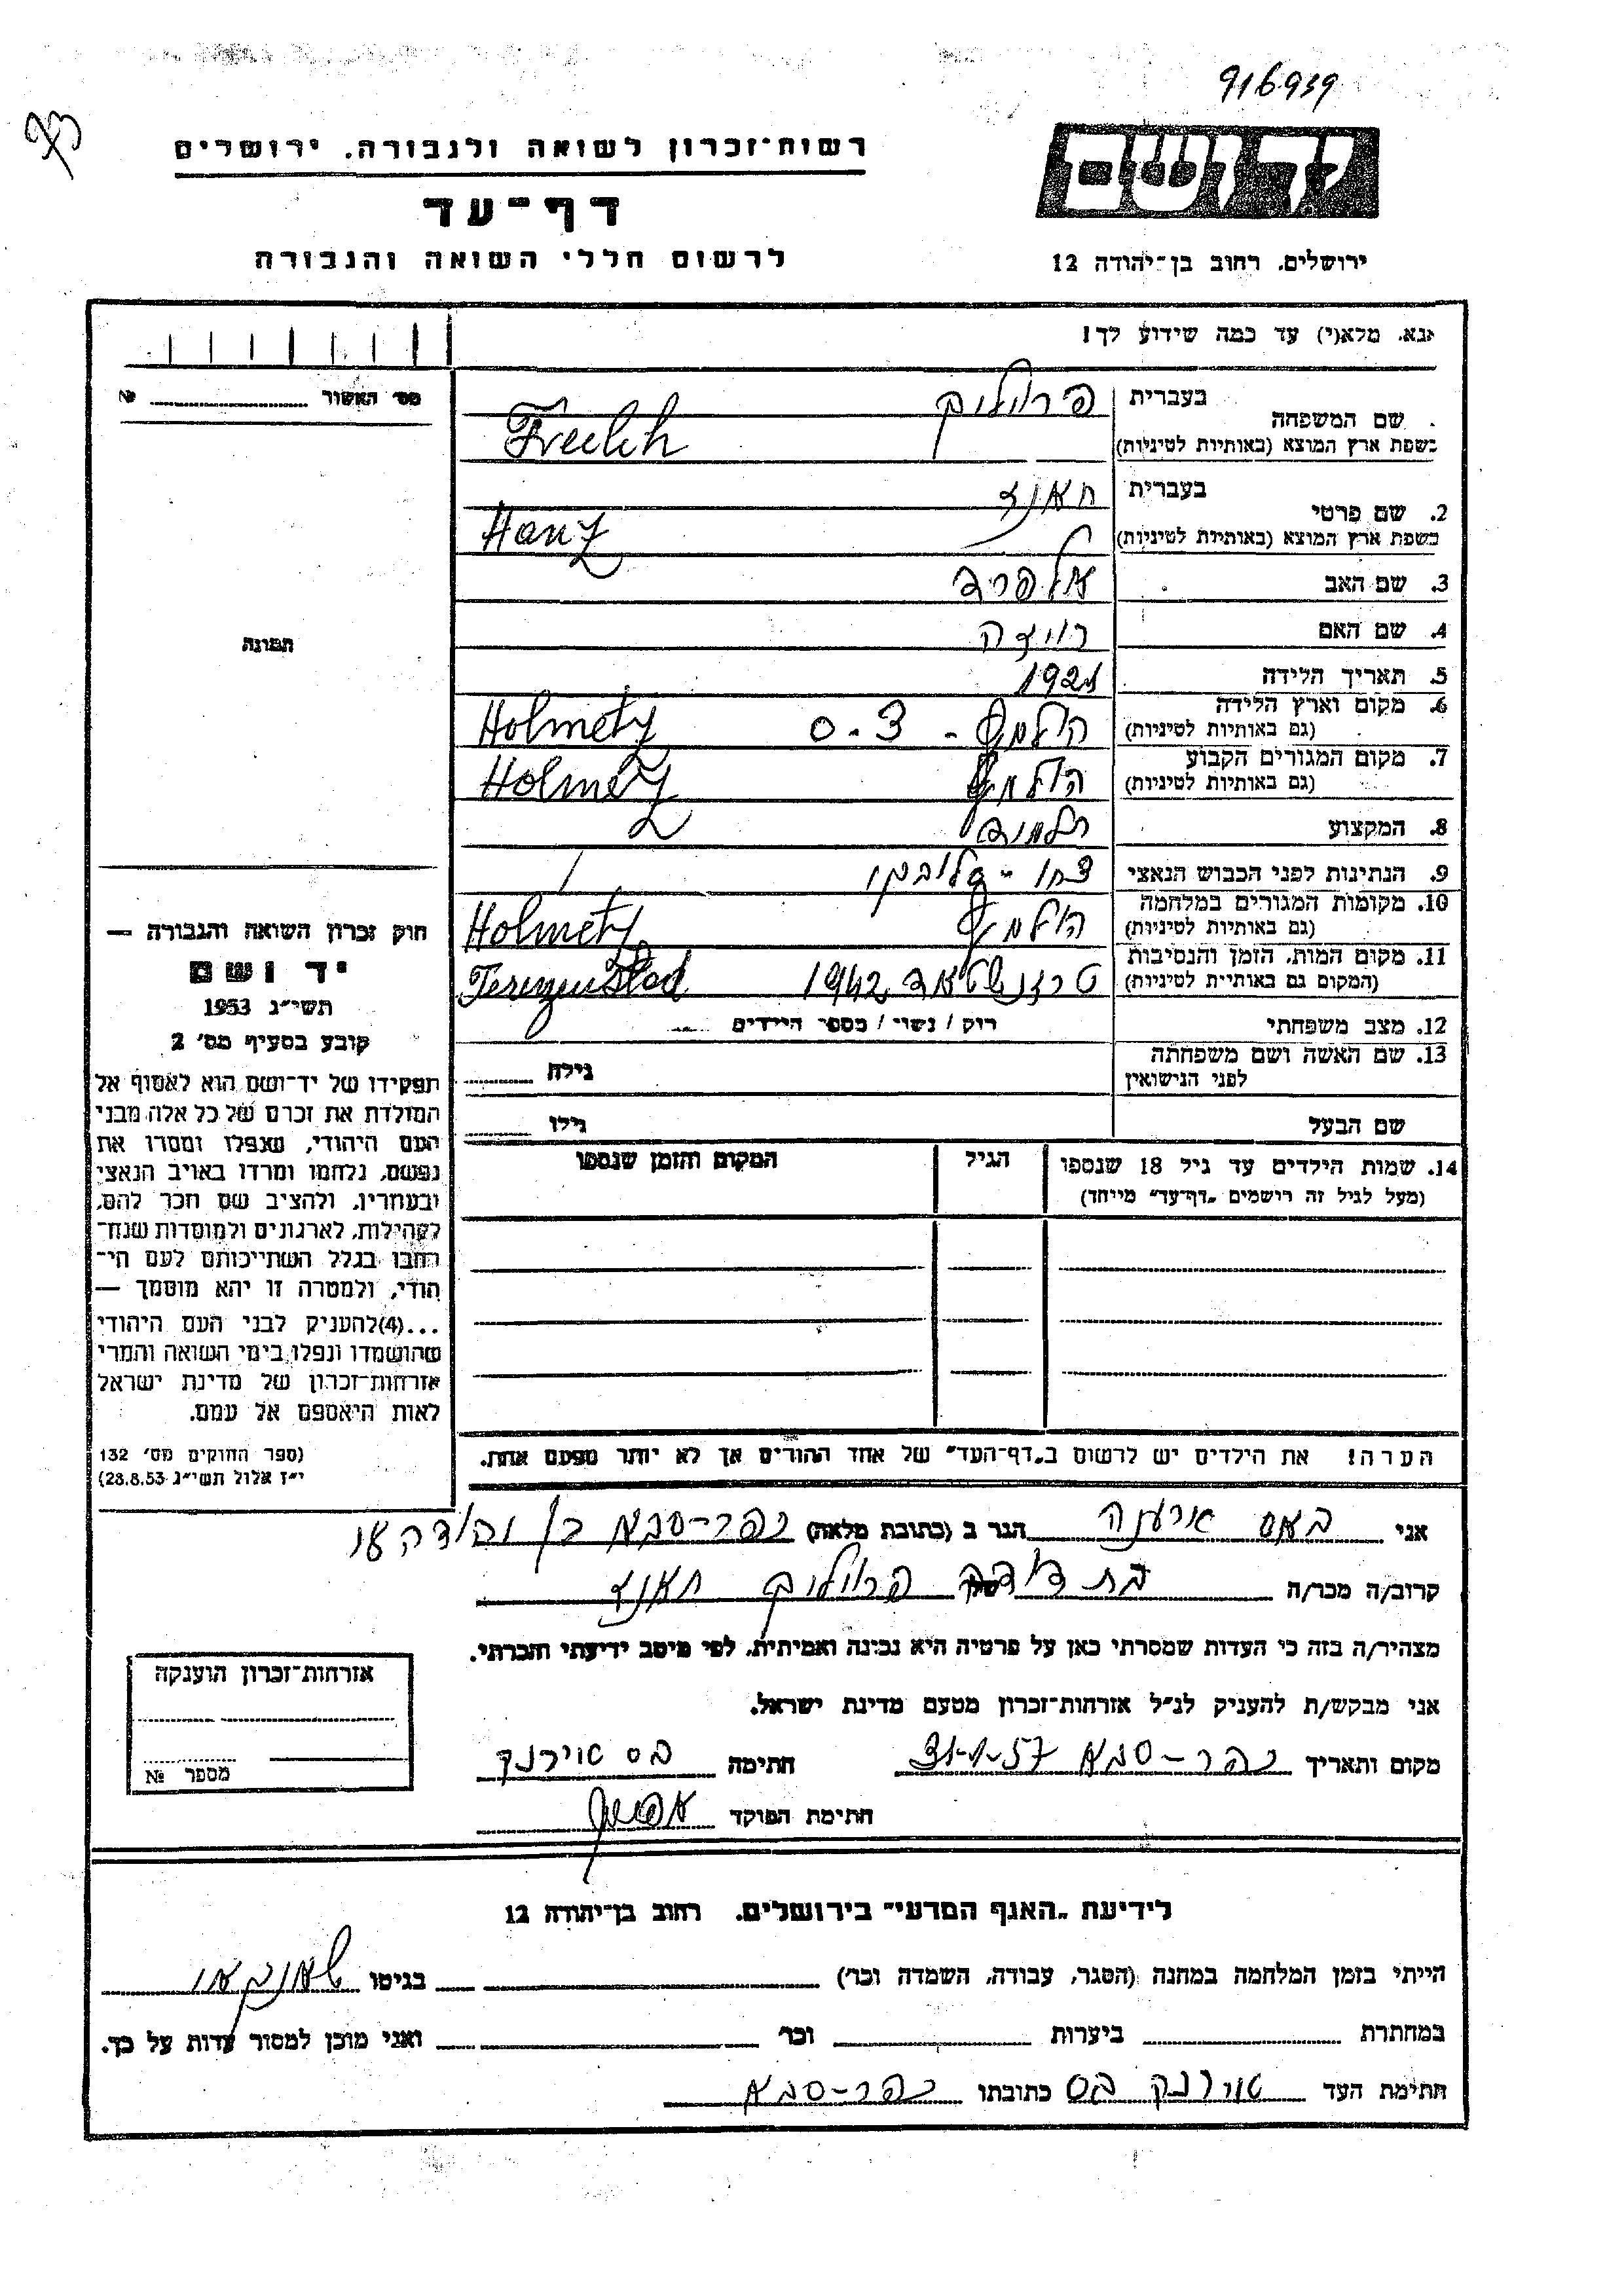 916939
רשות־זכרון לשואה ולגבורה. ירושלים
דף־עד
לרשום חללי השואה והגבורה
יד ושם
ירושלים. רחוב בן־יהודה 12
אנא. מלא(י) עד כמה שידוע לך!
מס׳ האשור № 
שם המשפחה
בעברית פרוילוק
בשפת ארץ המוצא (באותיות לטיניות) Freulih
2. שם פרטי
בעברית
בשפת ארץ המוצא (באותיות לטיניות) Hanz
3. שם האב אלפרד
4. שם האם רוזה
5. תאריך הלידה
6. מקום וארץ הלידה
(גם באותיות לטיניות) Holmetz
7. מקום המגורים הקבוע
(גם באותיות לטיניות) Holmetz
8. המקצוע תלמיד
9. הנתינות לפני הכבוש הנאצי
10. מקומות המגורים במלחמה
(גם באותיות לטיניות) Holmetz
11. מקום המות, הזמן והנסיבות
(המקום גם באותיות לטיניות) 1942 Terezenstad
12. מצב משפחתי רוק / נשוי / מספר הילדים
13. שם האשה ושם משפחתה
לפני הנישואין
גילה
שם הבעל גילו
14. שמות הילדים עד גיל 18 שנספו
(מעל לגיל זה רישמים „דף־עד״ מייחד)
הגיל
המקום והזמן שנספו
הערה! את הילדים יש לרשום ב„דף־העד״ של אחד ההורים אך לא יותר מפעם אחת.
תמונה
חוק זכרון השואה והגבורה —
יד ושם
תשי״ג 1953
קובע בסעיף מס׳ 2
תפקידו של יד־ושם הוא לאסוף אל
המולדת את זכרם של כל אלה מבני
העם היהודי, שנפלו ומסרו את
נפשם, נלחמו ומרדו באויב הנאצי
ובעוזריו, ולהציב שם וזכר להם,
לקהילות, לארגונים ולמוסדות שנח־
רבו בגלל השתייכותם לעם הי־
הודי, ולמטרה זו יהא מוסמך —
...(4) להעניק לבני העם היהודי
שהושמדו ונפלו בימי השואה והמרי
אזרחות־זכרון של מדינת ישראל
לאות היאספם אל עמם.
(ספר החוקים מס׳ 132
י״ז אלול תשי״ג 28.8.53)
אני הגר ב (כתובת מלאה) כפר-סבא
קרוב/ה מכר/ה בת דודה של
מצהיר/ה בזה כי העדות שמסרתי כאן על פרטיה היא נכונה ואמיתית, לפי מיטב ידיעתי והכרתי.
אני מבקש/ת להעניק לנ״ל אזרחות־זכרון מטעם מדינת ישראל.
מקום ותאריך כפר-סבא חתימה
חתימת הפוקד
אזרחות־זכרון הוענקה
מספר №
לידיעת „האגף המדעי״ בירושלים. רחוב בן־יהודה 12
הייתי בזמן המלחמה במחנה (הסגר, עבודה, השמדה וכו׳) בגיטו
במחתרת ביערות וכו׳ ואני מוכן למסור עדות על כך.
חתימת העד כתובתו כפר-סבא